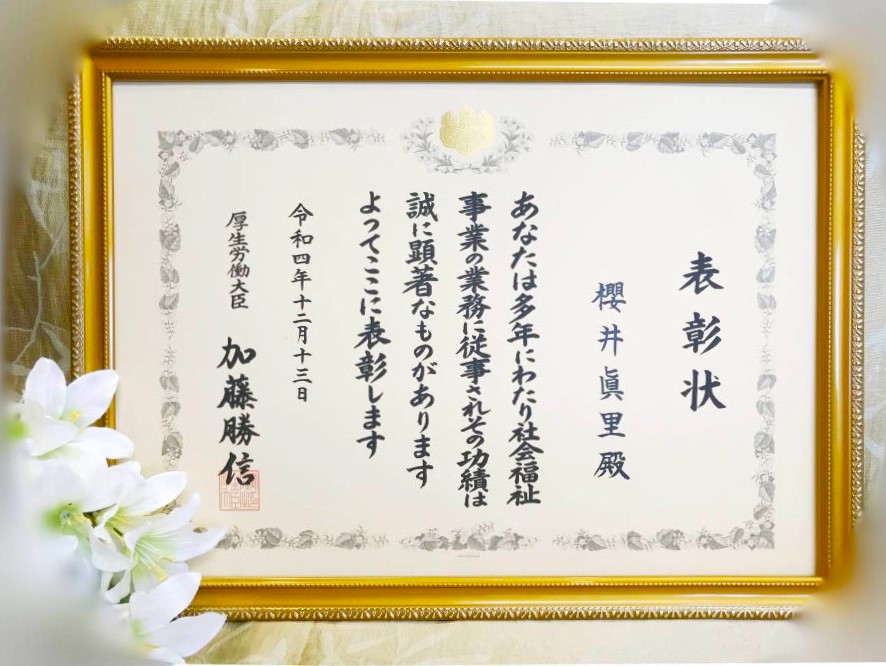 表彰状
櫻井眞里殿
あなたは多年にわたり社会福祉
事業の業務に従事されその功績は
誠に顕著なものがあります
よってここに表彰します
令和四年十二月十三日
厚生労働大臣 加藤勝信